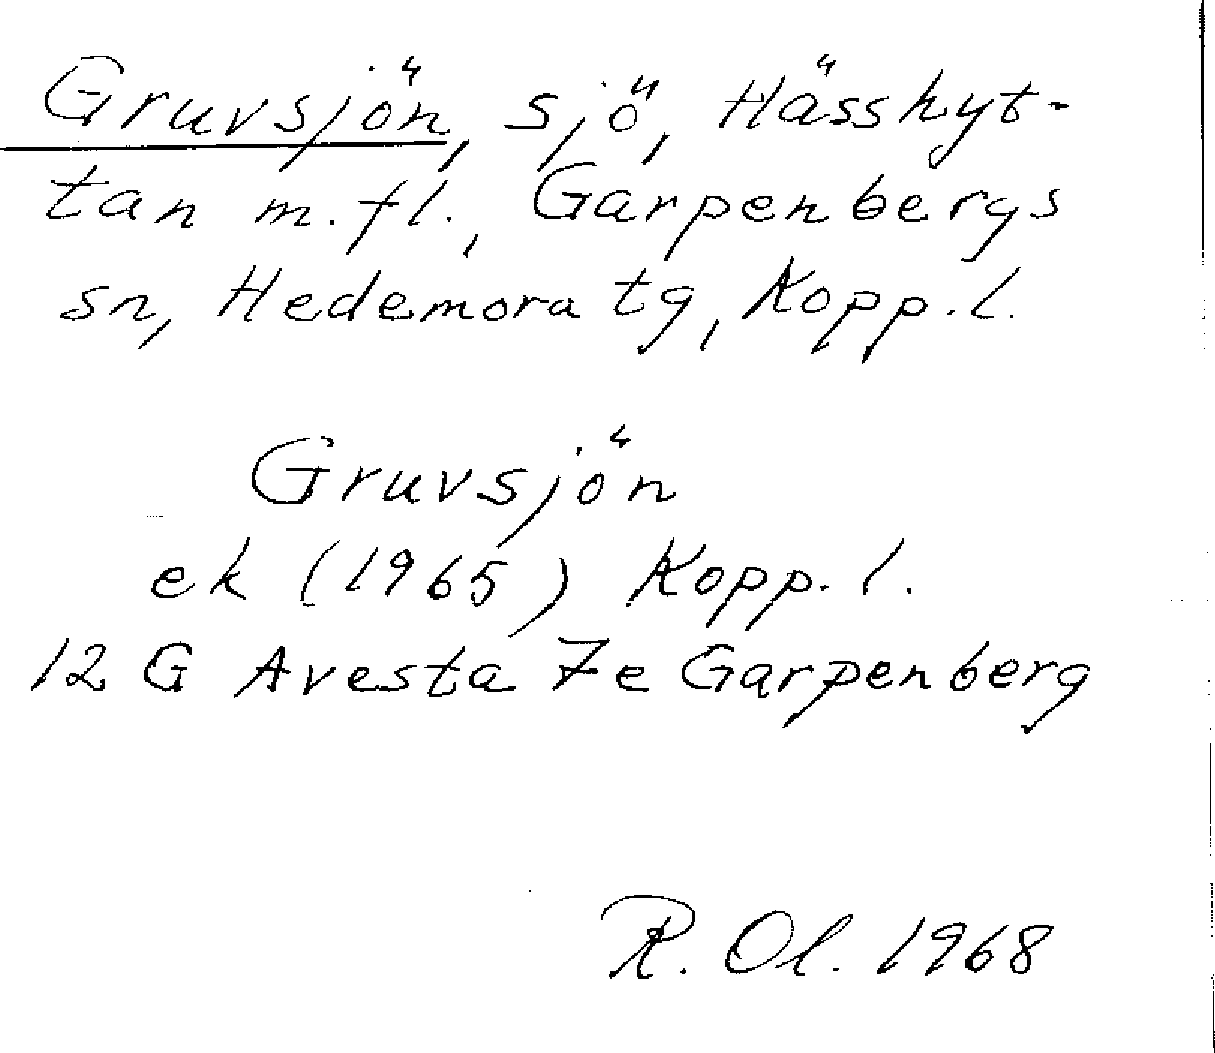 Gruvsjön, sjö, Hässhyt-
tan m.fl., Garpenbergs
sn, Hedemora tg, Kopp.l.
Gruvsjön
ek (1965) Kopp. l.
12 G Avesta 7e Garpenberg
R. Ol. 1968